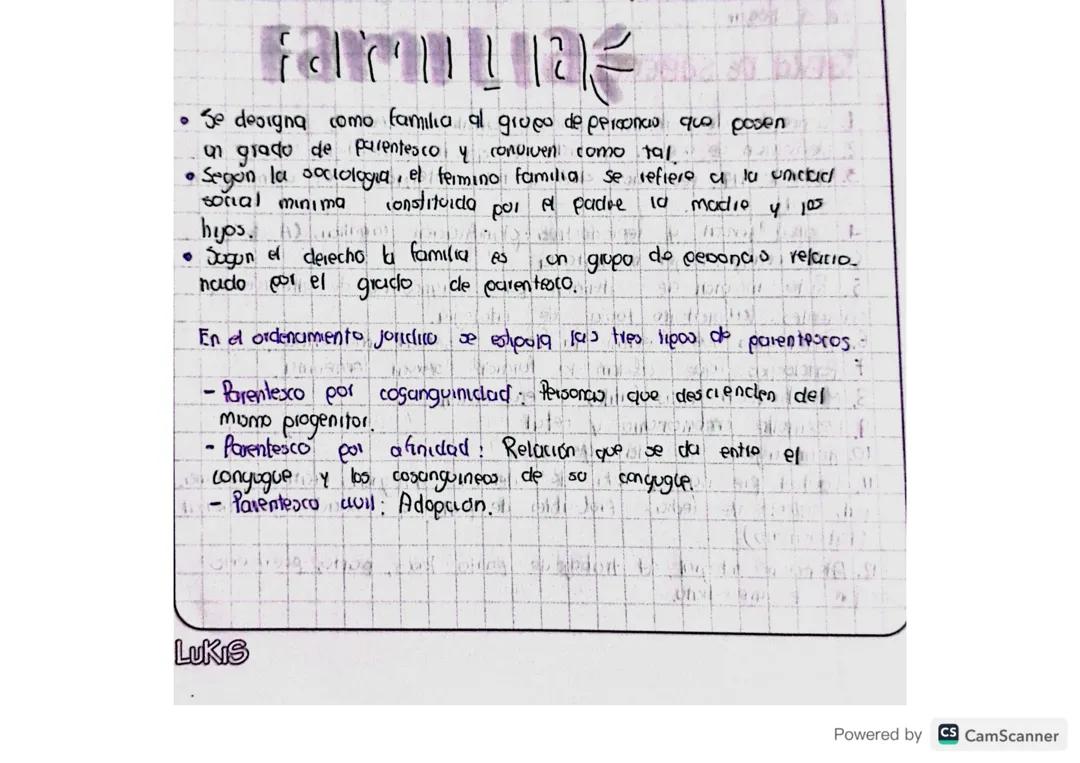 Familia
• Se designa como familia al grupo de personas que posen
un grado de parentesco y conviven como tal.
• Según la sociologia, el termino familial se refiere a la unidad
social minima constituida por el padre la madre y los
hijos.
• Sogun el derecho la familia es un grupo de personas relacio-
nado por el grado de parentesco.
En el ordenamiento juridico se estipula las tres tipos de parentescos:
- Parentesco por cosanguinidad: Personas que descienden del
mismo progenitor.
- Parentesco por afinidad: Relación que se da entre el
conyugue y los cosanguineos de su conyugue.
- Parentesco civil: Adopción.
LuKIS
Powered by CS CamScanner